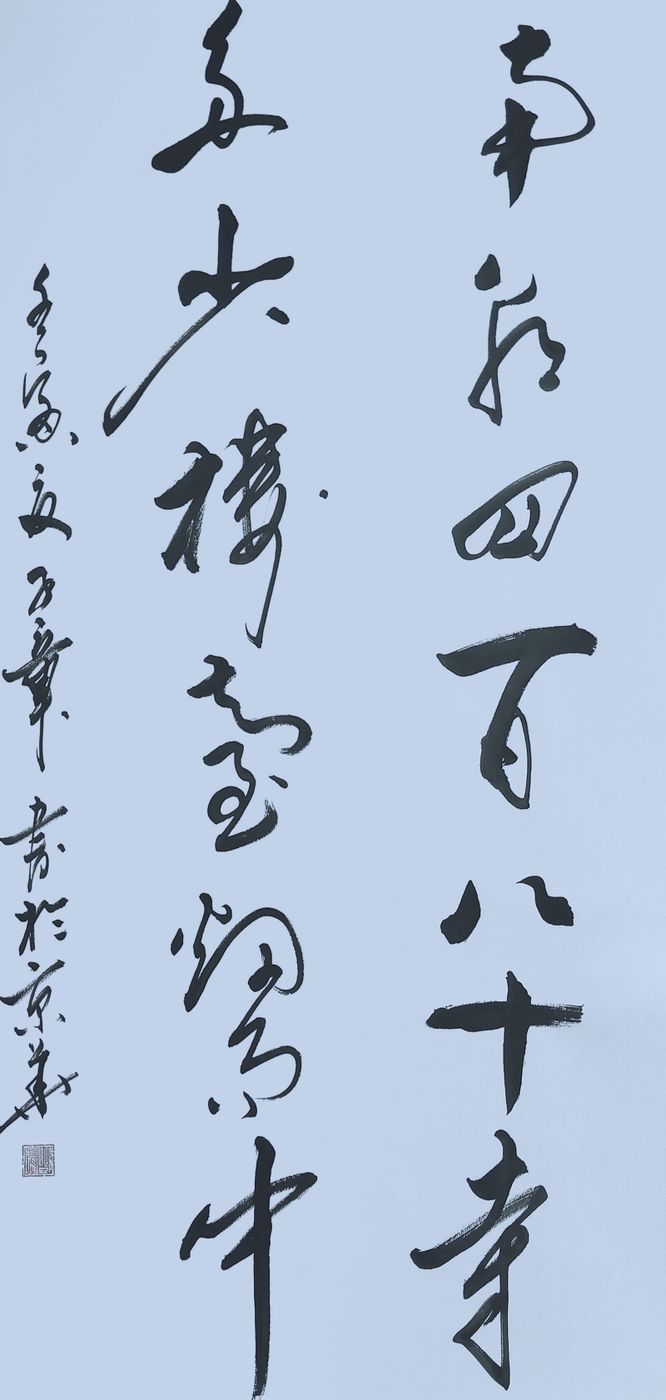 南朝四百八十寺
多少樓臺烟雨中
子章書於京華